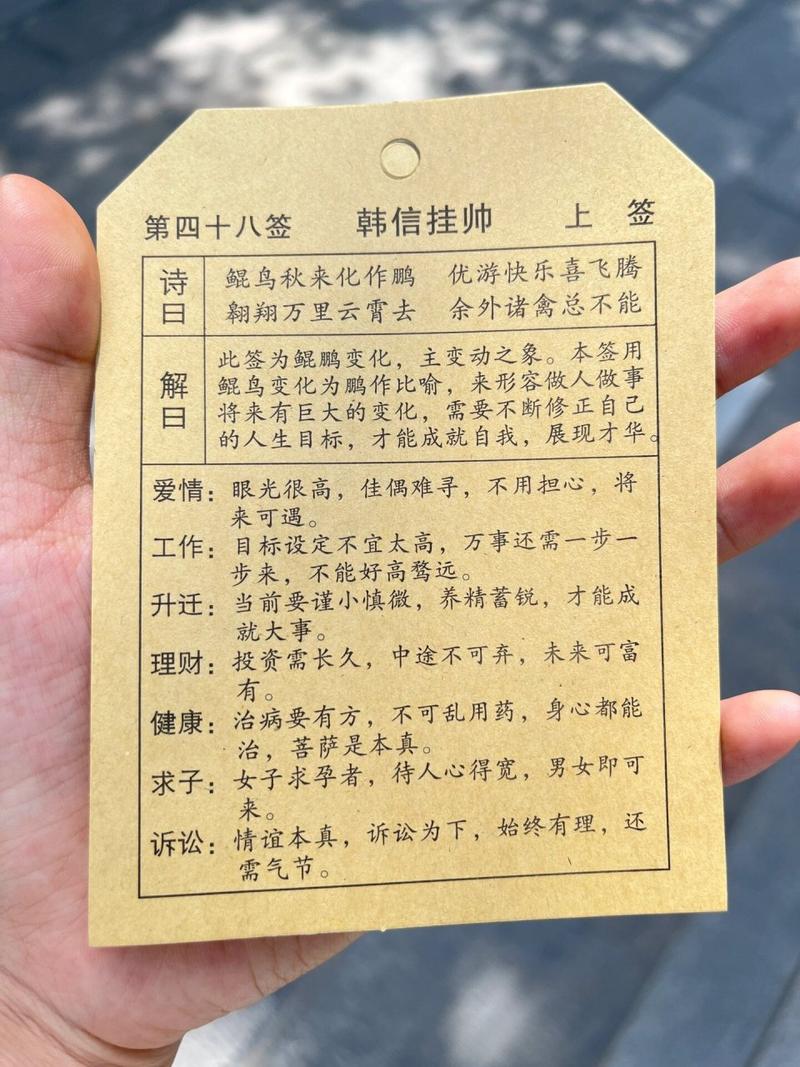 第四十八签 韩信挂帅 上 签
诗曰
鲲鸟秋来化作鹏 优游快乐喜飞腾
翱翔万里云霄去 余外诸禽总不能
解曰
此签为鲲鹏变化，主变动之象。本签用
鲲鸟变化为鹏作比喻，来形容做人做事
将来有巨大的变化，需要不断修正自己
的人生目标，才能成就自我，展现才华。
爱情：眼光很高，佳偶难寻，不用担心，将
来可遇。
工作：目标设定不宜太高，万事还需一步一
步来，不能好高骛远。
升迁：当前要谨小慎微，养精蓄锐，才能成
就大事。
理财：投资需长久，中途不可弃，未来可富
有。
健康：治病要有方，不可乱用药，身心都能
治，菩萨是本真。
求子：女子求孕者，待人心得宽，男女即可
来。
诉讼：情谊本真，诉讼为下，始终有理，还
需气节。